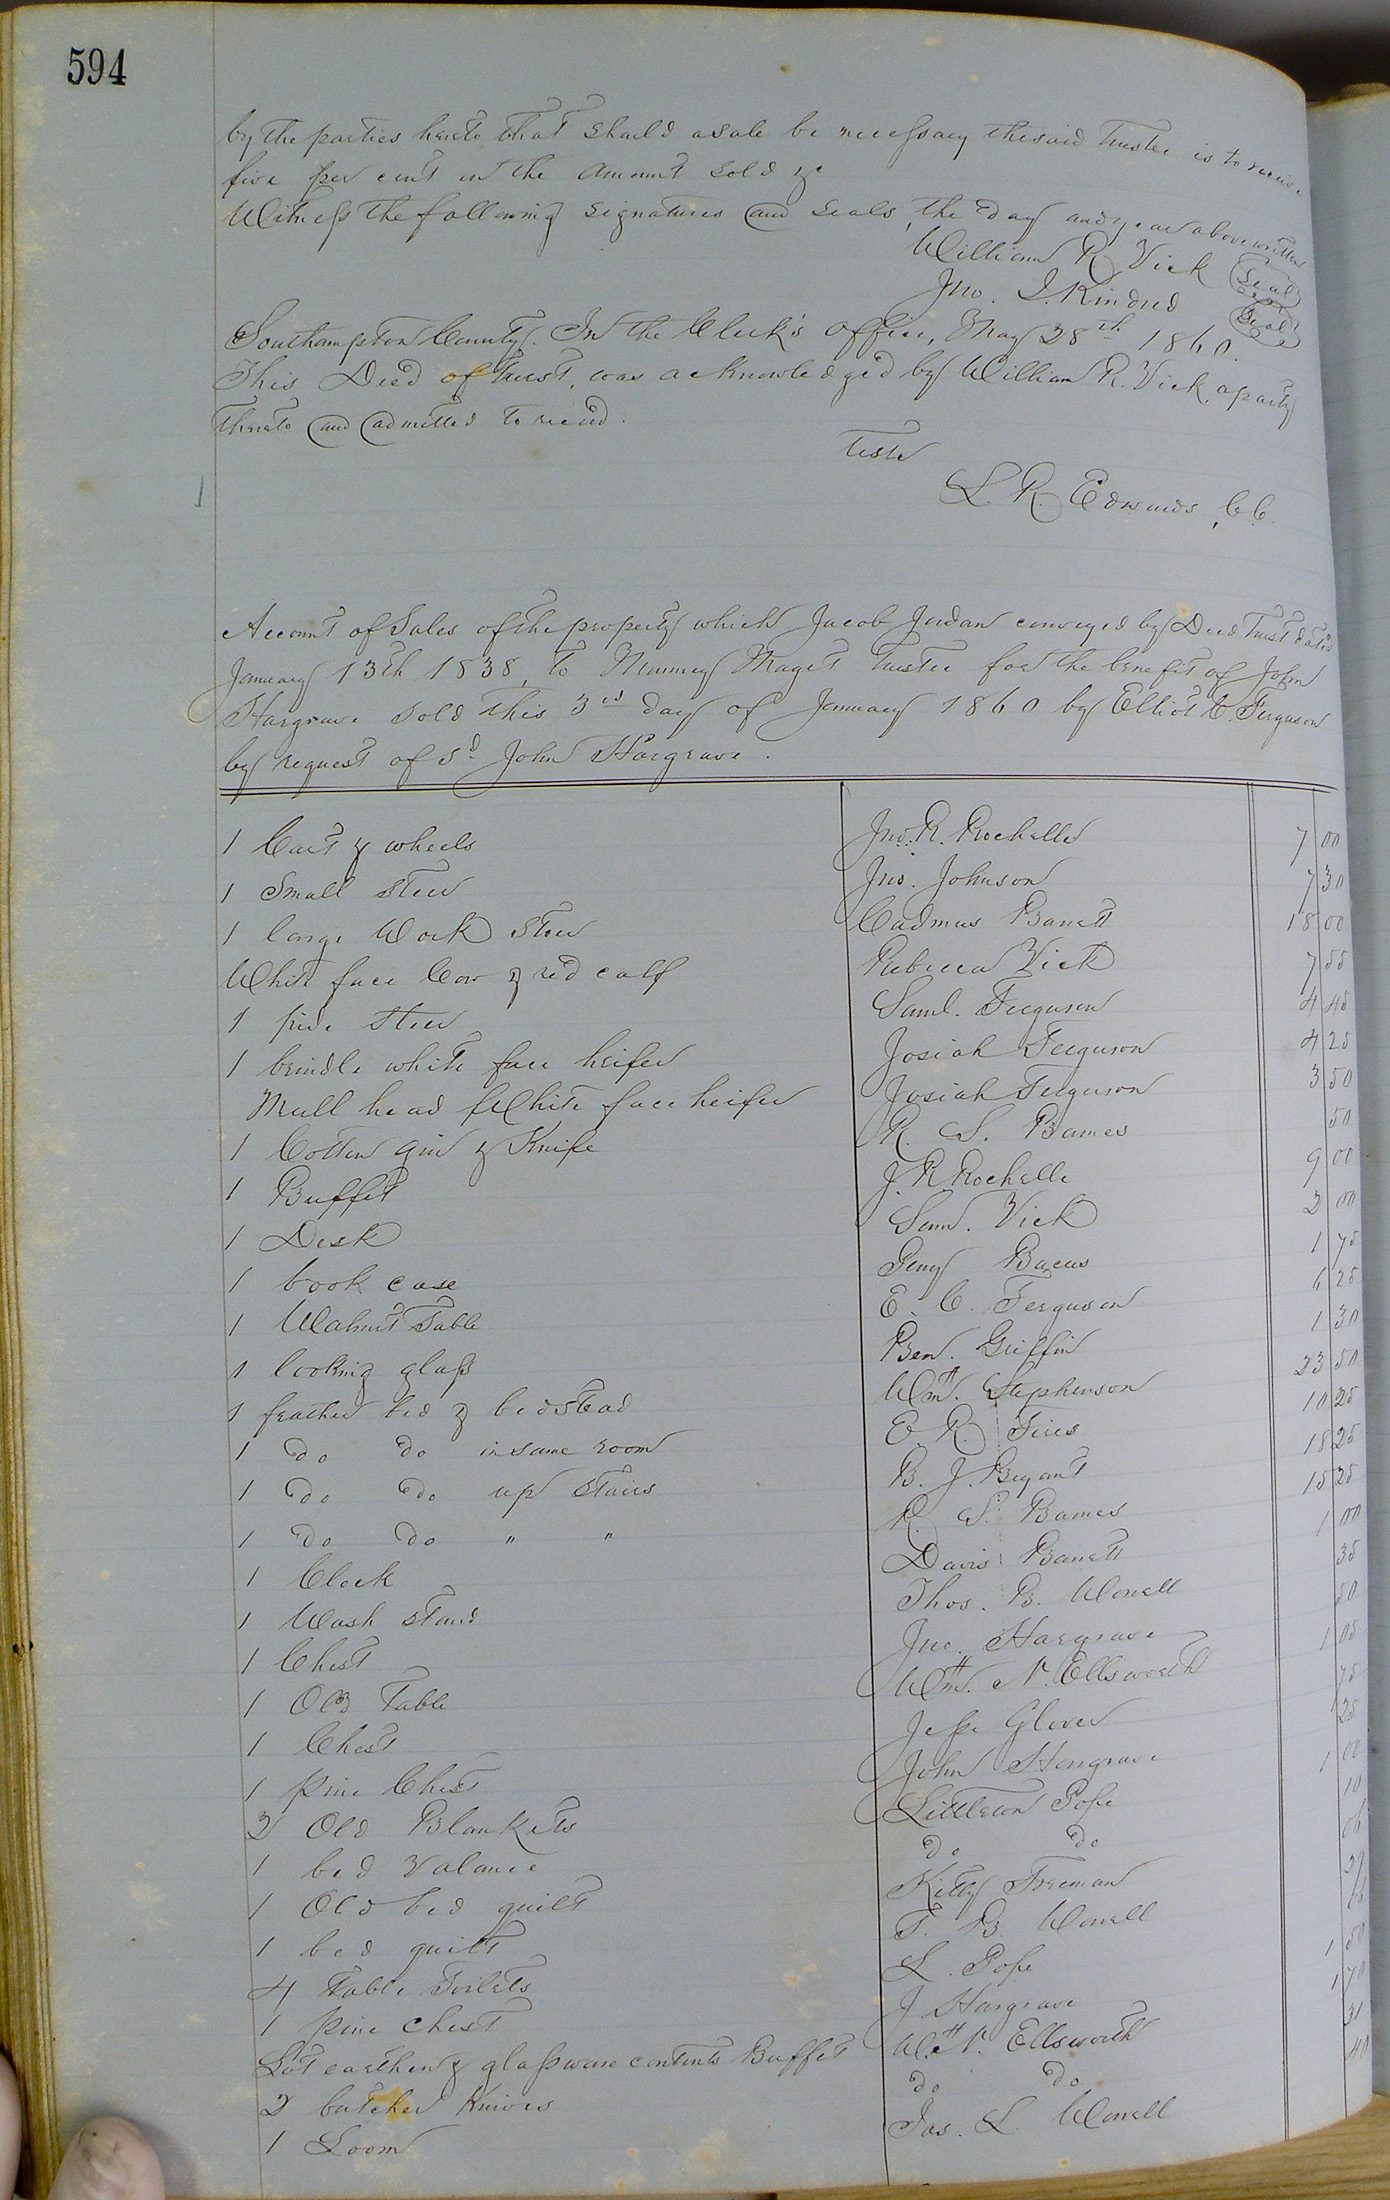 594
by the parties hereto that should a sale be necessary the said Trustee is to receive
five per cent on the amount sold &c
Witness the following signatures and seals, the day and year above written
William R. Vick Seal
Jno. I. Kindred Seal
Southampton County. In the Clerk's office, May 28th 1860.
This Deed of Trust, was acknowledged by William R. Vick, a party
thereto and admitted to record.
Teste
L. R. Edwards, C.C.
Account of Sales of the property which Jacob Jordan conveyed by Deed Trust dated
January 13th 1838, to Trustee for the benefit of John
Hargrave sold this 3rd day of January 1860 by Elliot C. Ferguson
by request of sd John Hargrave.
1 Cart & wheels Jno. R. Rochelle 7 00
1 Small steer Jno. Johnson 7 30
1 large Work Steer Cadmus Barrett 18 00
White face Cow & red calf Rebecca Vick 7 55
1 pide steer Saml. Ferguson 4 45
1 brindle white face heifer Josiah Ferguson 4 25
Mull head White face heifer Josiah Ferguson 3 50
1 Cotton gin & Knife R. S. Barnes 50
1 Buffet J. R. Rochelle 9 00
1 Desk Saml. Vick 2 00
1 book case 1 75
1 Walnut Table E. C. Ferguson 6 25
1 looking glass Ben. Griffin 1 30
1 feather bed & bedstead Wm. Stephenson 23 50
1 do do in same room E. R. 10 25
1 do do up stairs B. J. Bryant 18 25
1 do do " " R. S. Barnes 15 25
1 Clock Davis Barrett 1 00
1 Wash stand Thos. B. Worrell 35
1 Chest Jno. Hargrave 50
1 Old Table Wm. N. Ellsworth 1 05
1 Chest Jesse Glover 75
1 pine Chest John Hargrave 25
2 Old Blankets Littleton Pope 1 00
1 bed valance do do 10
1 Old bed quilt Kitty Freeman 06
1 bed quilt T. B. Worrell
4 Table Toilets L. Pope
1 pine chest J. Hargrave 1 50
Lot earthen & glassware contents Buffet W. N. Ellsworth 1 70
2 butcher Knives do do 31
1 Loom Jas. L. Worrell 40